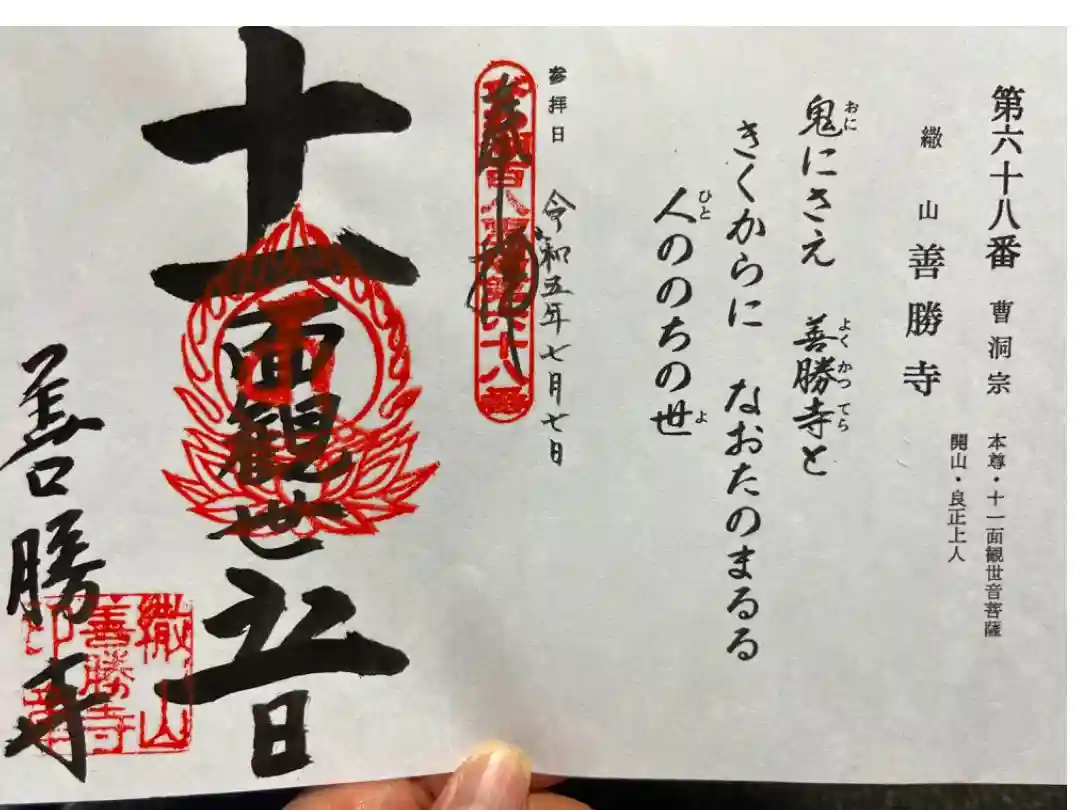 第六十八番 曹洞宗 本尊・十一面観世音菩薩
開山・良正上人
繖山 善勝寺
鬼にさえ 善勝寺と
おに よくかつてら
きくからに なおたのまるる
人ののちの世
ひと よ
参拝日 令和五年七月七日
奉拝
十一面観世音
善勝寺
繖山
善勝寺
印章